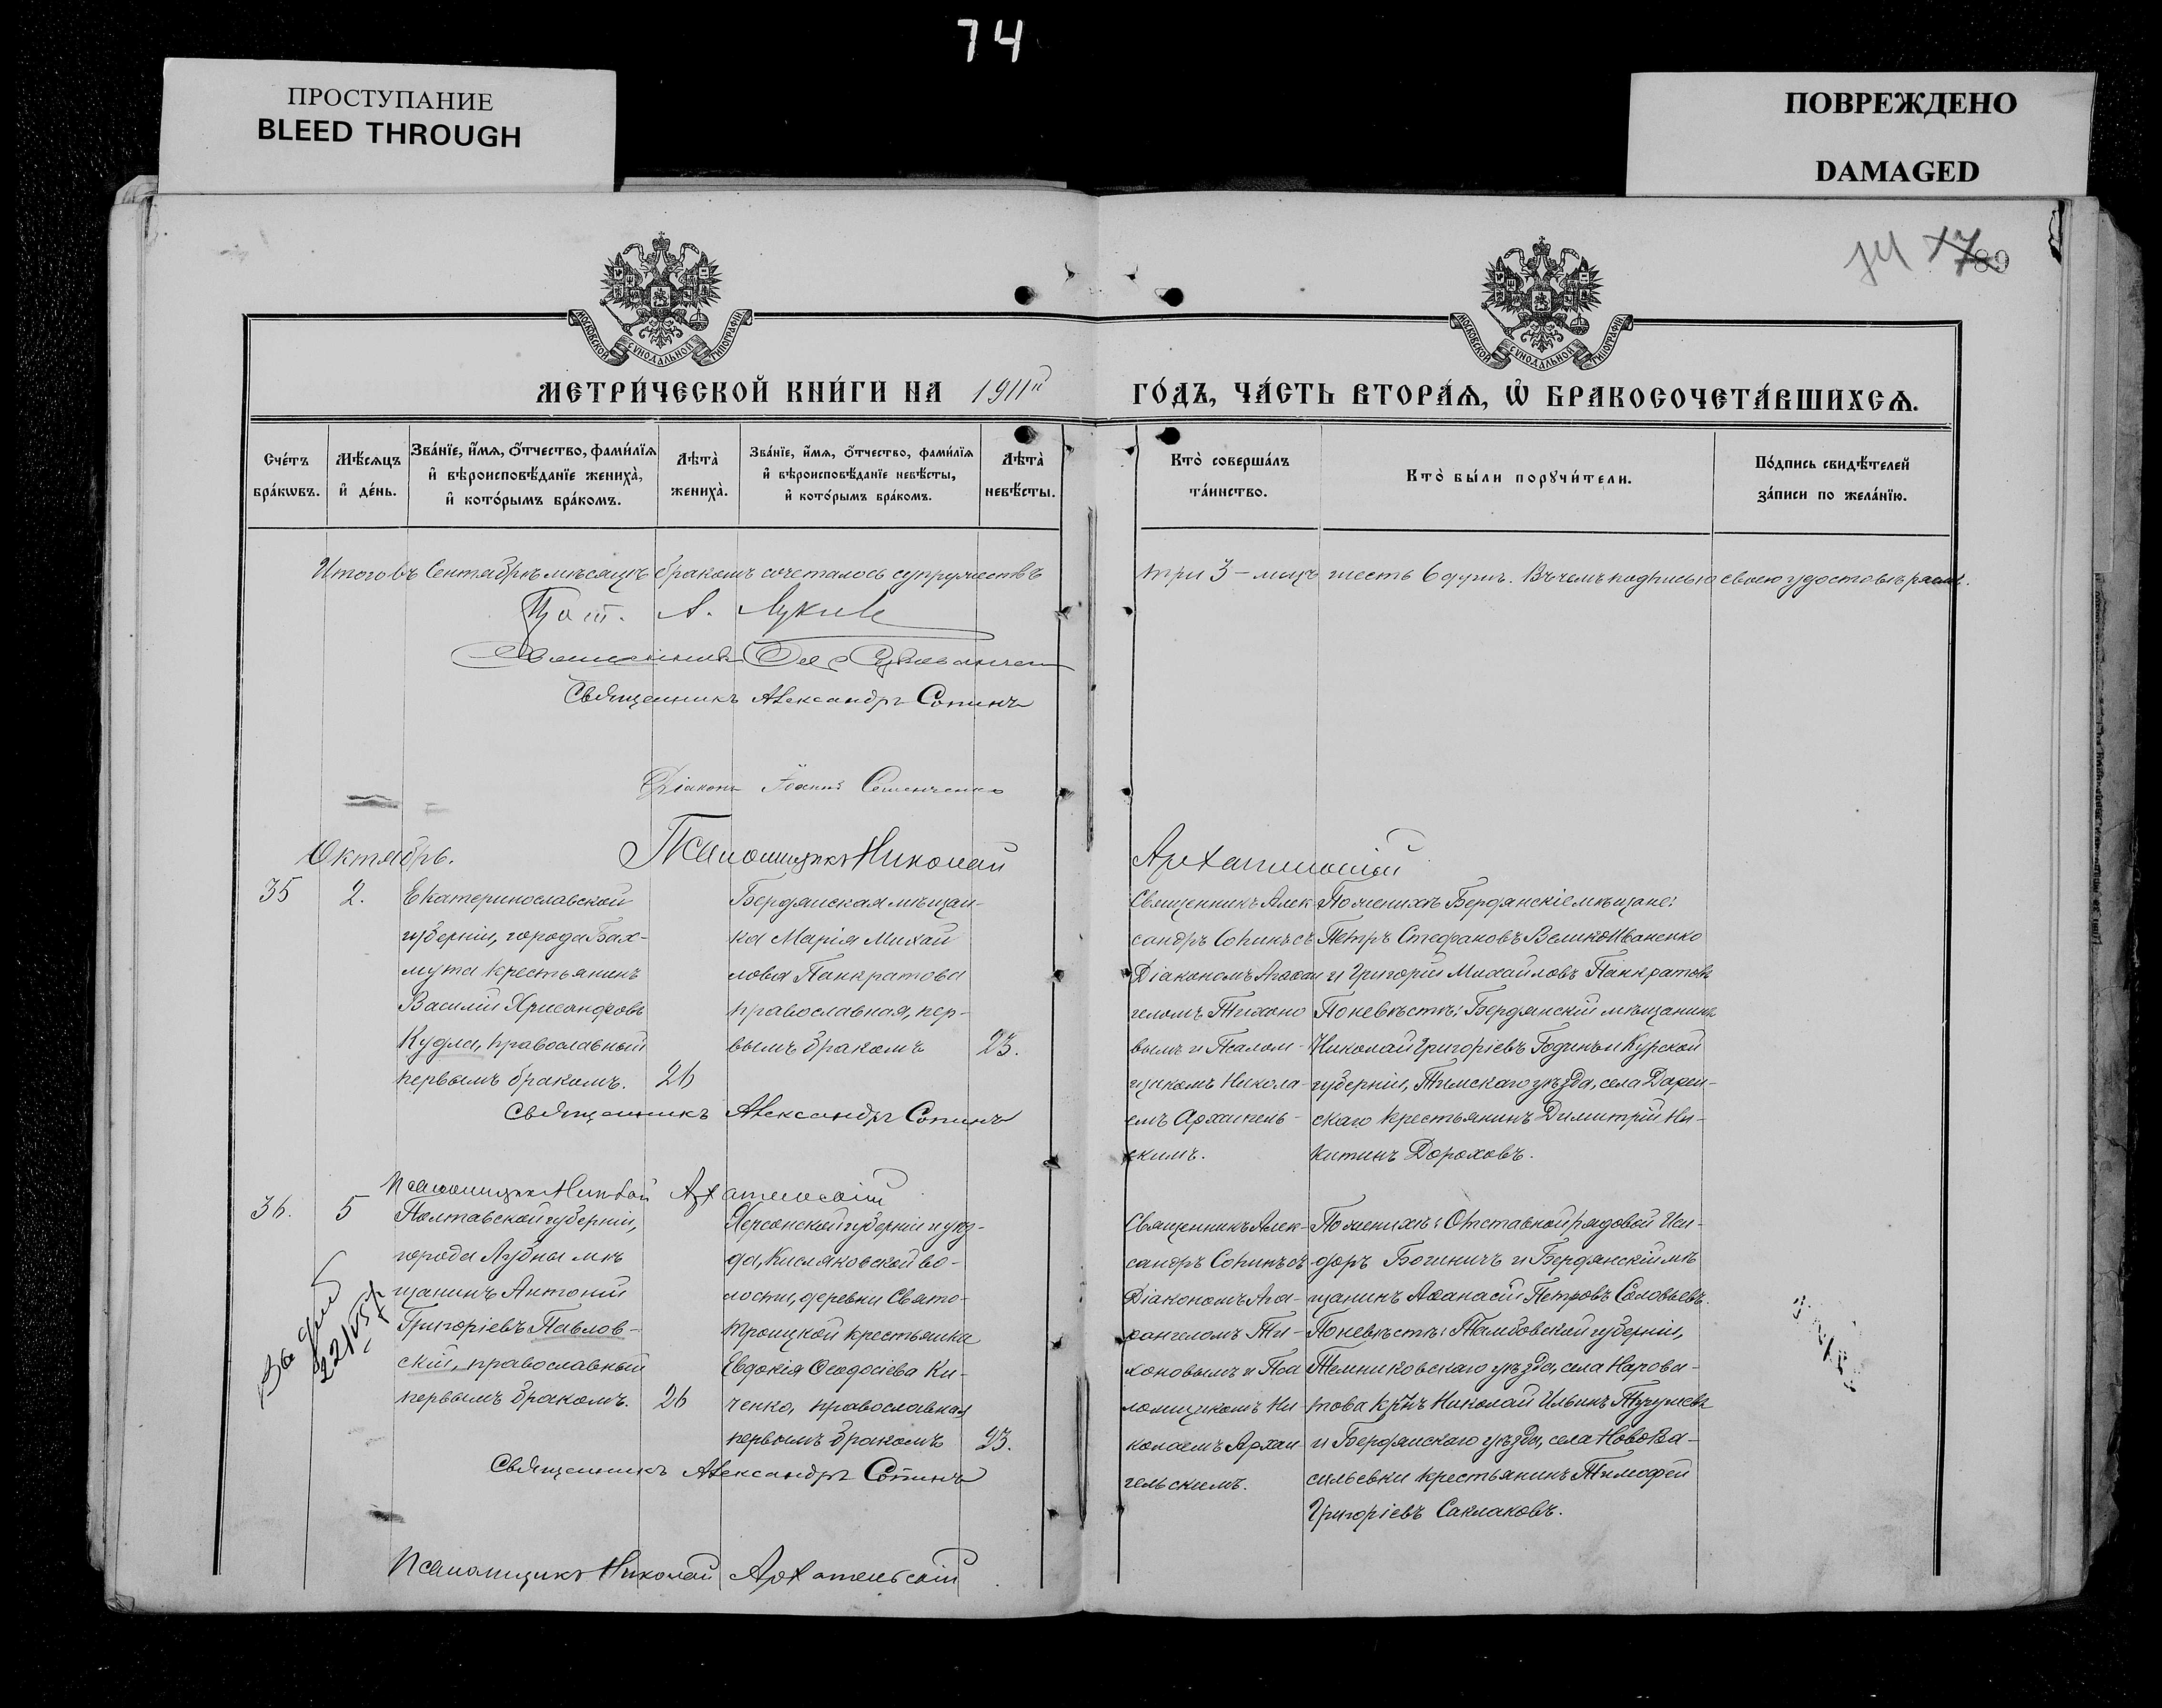 74
ПРОСТУПАНИЕ
BLEED THROUGH
ПОВРЕЖДЕНО
DAMAGED
89
МОСКОВСКОЙ СѴНОДАЛЬНОЙ ТИПОГРАФІИ
МОСКОВСКОЙ СѴНОДАЛЬНОЙ ТИПОГРАФІИ
МЕТРИ́ЧЕСКОЙ КНИ́ГИ НА 1911й ГО́ДЪ, ЧА́СТЬ ВТОРА́Ѧ, Ѡ҆ БРАКОСОЧЕТА́ВШИХСѦ.
Сче́тъ
бра́кѡвъ.
Мѣ́сѧцъ
и҆ де́нь.
Зва́нїе, и҆́мѧ, ѻ҆́тчество, фами́лїѧ
и҆ вѣроисповѣ́данїе жениха̀,
и҆ кото́рымъ бра́комъ.
Лѣта̀
жениха̀.
Зва́нїе, и҆́мѧ, ѻ҆́тчество, фами́лїѧ
и҆ вѣроисповѣ́данїе невѣ́сты,
и҆ кото́рымъ бра́комъ.
Лѣта̀
невѣ́сты.
Кто̀ соверша́лъ
та́инство.
Кто̀ бы́ли порꙋчи́тели.
По́дпись свидѣ́телей
за́писи по жела́нїю.
Итого въ Сентябрѣ мѣсяцѣ бракомъ сочеталось супружествъ три 3 – лицъ шесть 6 душъ. Въ чемъ подписью своею удостовѣряемъ.
Прот. А.
Священникъ
Священникъ Александръ Сопинъ
Діаконъ Іоаннъ Семенченко
Псаломщикъ Николай Архангельскій
Октябрь.
35
2.
Екатеринославской
губерніи, города Бах-
мута крестьянинъ
Василій Хрисанфовъ
Кудла, православный
первымъ бракомъ.
26
Бердянская мѣщан-
ка Марія Михаи
лова Панкратова
православная, пер-
вымъ бракомъ
23.
Священникъ Алек-
сандръ Сопинъ съ
Діакономъ Архан
геломъ Тихоно
вымъ и Псалом-
щикомъ Никола-
емъ Архангель-
скимъ.
По женихѣ Бердянскіе мѣщане:
Петръ Стефановъ Великоиваненко
и Григорій Михайловъ Панкратовъ
По невѣстѣ: Бердянскій мѣщанинъ
Николай Григорьевъ Годинъ и Курской
губерніи, Тимскаго уѣзда, села
скаго крестьянинъ Димитрій Ни-
китинъ Дороховъ.
Священникъ Александръ Сопинъ
Псаломщикъ Николай Архангельскій
36.
5
22/I 55 г
Полтавской губерніи,
города Лубны мѣ
щанинъ Антоній
Григоріевъ Павлов-
скій, православный
первымъ бракомъ.
26
Херсонской губерніи и уѣз-
да, Кисляковской во-
лости, деревни Свято-
троицкой крестьянка
Евдокія Ѳеодосіева Ки-
ченко, православная
первымъ бракомъ
23.
Священникъ Алек-
сандръ Сопинъ съ
Діакономъ Ар-
хангеломъ Ти-
хоновымъ и Пса
ломщикомъ Ни-
колаемъ Архан
гельскимъ.
По женихѣ: Отставной рядовой Иси-
доръ Богиничъ и Бердянскій мѣ
щанинъ Аѳанасій Петровъ Соловьевъ.
По невѣстѣ: Тамбовской губерніи,
Темниковскаго уѣзда, села Нарова-
това кр-нъ Николай Ильинъ
и Бердянскаго уѣзда, села Новова-
сильевки крестьянинъ Тимофей
Григоріевъ Саклаковъ.
Священникъ Александръ Сопинъ
Псаломщикъ Николай Архангельскій